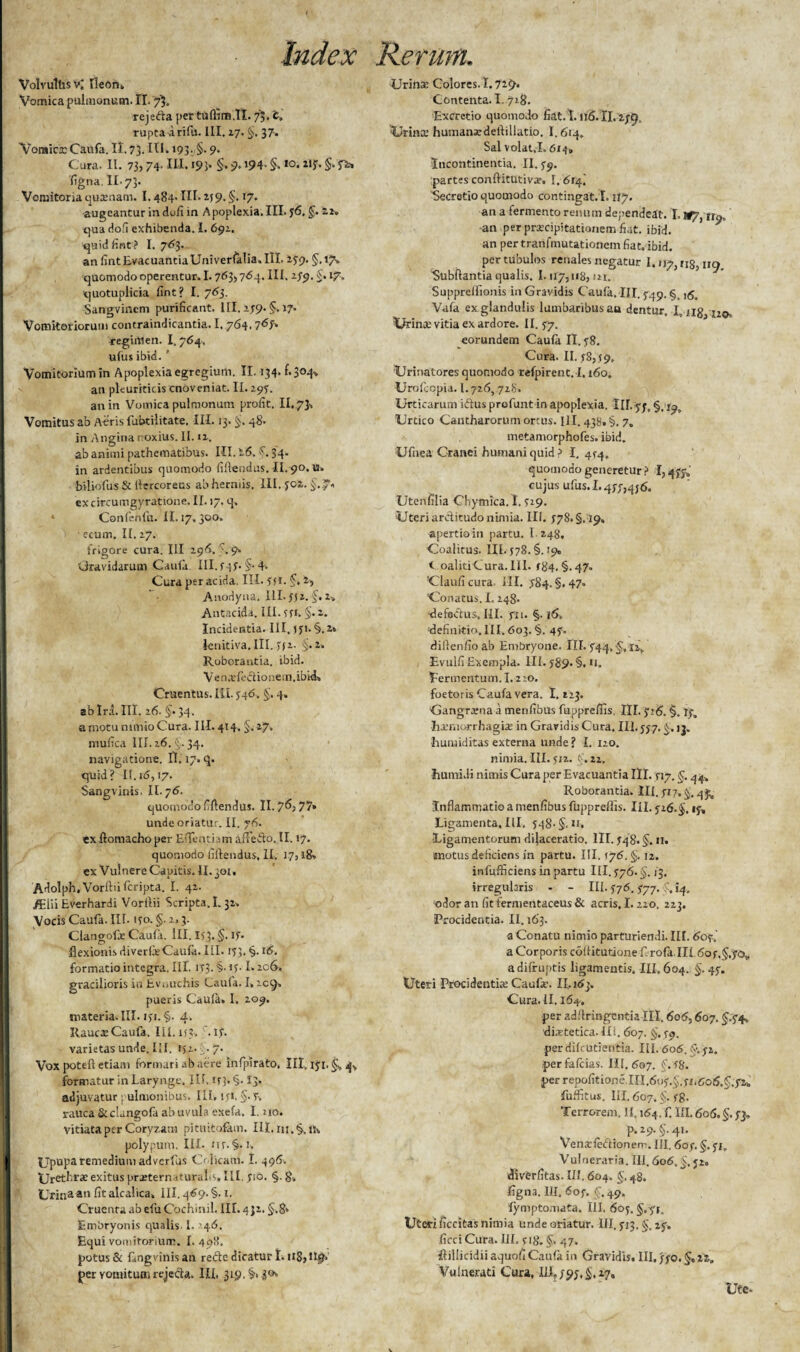 Index Rerum.
Volvulus v. Ileon.
Vomica pulmonum. II. 73.
rejecta per tussim. II. 73. c.
rupta a risu. III. 27. §. 37.
Vomicæ Causa. II. 73. III. 193. §. 9.
Cura. II. 73, 74. III. 193. §. 9. 194. §. 10. 215. §. 52.
signa. II. 73.
Vomitoria quænam. I. 484. III. 259. §. 17.
augeantur in dosi in Apoplexia. III. 56. §. 22.
qua dosi exhibenda. I. 692.
quid sint? I. 763.
an sint Evacuantia Universalia. III. 259. §. 17.
quomodo operentur. I. 763, 764. III. 259. §. 17.
quotuplicia sint? I. 763.
Sangvinem purificant. III. 259. §. 17.
Vomitoriorum contraindicantia. I. 764, 765.
regimen. I. 764.
usus ibid.
Vomitorium in Apoplexia egregium. II. 134. f. 304.
an pleuriticis cnoveniat. II. 295.
an in Vomica pulmonum profit. II. 73.
Vomitus ab Aëris subtilitate. III. 13. §. 48.
in Angina noxius. II. 12.
ab animi pathematibus. III. 26. §. 34.
in ardentibus quomodo sistendus. II. 90. u.
biliosus & stercoreus ab herniis. III. 502. §. 7.
ex circumgyratione. II. 17. q.
Consensu. II. 17. 300.
ecum. II. 27.
frigore cura. III 296. §. 9.
Gravidarum Causa III. 545. §. 4.
Cura per acida. III. 551. §. 2,
Anodyna. III. 552. §. 2.
Antacida. III. 551. §. 2.
Incidentia. III. 551. §. 2.
lenitiva. III. 552. §. 2.
Roborantia. ibid.
Venæsectionem. ibid.
Cruentus. III. 546. §. 4.
ab Ira. III. 26. §. 34.
a motu nimio Cura. III. 414. §. 27.
musica III. 26. §. 34.
navigatione. II. 17. q.
quid? II. 16, 17.
Sangvinis. II. 76.
quomodo sistendus. II. 76, 77.
unde oriatur. II. 76.
ex stomacho per Essentiam affecto. II. 17.
quomodo sistendus. II. 17, 18.
ex Vulnere Capitis. II. 301.
Adolph. Vorstii scripta. I. 42.
Ælii Everhardi Vorstii Scripta. I. 32.
Vocis Causa. III. 150. §. 2, 3.
Clangosæ Causa. III. 153. §. 15.
flexionis diversæ Causa. III. 153. §. 16.
formatio integra. III. 153. §. 15. I. 206.
gracilioris in Evnuchis Causa. I. 209.
pueris Causa. I. 209.
materia. III. 151. §. 4.
Raucæ Causa. III. 153. §. 15.
varietas unde. III. 152. §. 7.
Vox potest etiam formari ab aëre inspirato. III. 151. §. 4.
formatur in Larynge. III. 153. §. 13.
adjuvatur pulmonibus. III. 151. §. 5.
rauca & clangosa ab uvula exesa. I. 210.
vitiata per Coryzam pituitosam. III. 111. §. 1.
polypum. III. 111. §. 1.
Upupa remedium adversus Colicam. I. 496.
Urethræ exitus præternaturalis. III. 510. §. 8.
Urina an sit alcalica. III. 469. §. 1.
Cruenta ab esu Cochinil. III. 432. §. 8.
Embryonis qualis. I. 246.
Equi vomitorium. I. 498.
potus & sangvinis an recte dicatur I. 118, 119.
per vomitum rejecta. III. 319. §. 30.
Urinæ Colores. I. 729.
Contenta. I. 718.
Excretio quomodo fiat. I. 116. II. 259.
Urinæ humanæ destillatio. I. 614.
Sal volat. I. 614.
Incontinentia. II. 59.
partes constitutivæ. I. 614.
Secretio quomodo contingat. I. 117.
an a fermento renum dependeat. I. 117, 119.
an per præcipitationem fiat. ibid.
an per transmutationem fiat. ibid.
per tubulos renales negatur I. 117, 118, 119.
Substantia qualis. I. 117, 118, 121.
Suppressionis in Gravidis Causa. III. 549. §. 16.
Vasa ex glandulis lumbaribus an dentur. I. 118, 120.
Urinæ vitia ex ardore. II. 57.
eorundem Causa II. 58.
Cura. II. 58, 59.
Urinatores quomodo respirent. I. 160.
Uroscopia. I. 726, 728.
Urticarum ictus prosunt in apoplexia. III. 55. §. 19.
Urtico Cantharorum ortus. III. 438. §. 7.
metamorphoses. ibid.
Usnea Cranei humani quid? I. 454.
quomodo generetur? I. 455.
cujus usus. I. 455, 456.
Utensilia Chymica. I. 529.
Uteri arctitudo nimia. III. 578. §. 19.
apertio in partu. I. 248.
Coalitus. III. 578. §. 19.
Coaliti Cura. III. 584. §. 47.
Clausi cura. III. 584. §. 47.
Conatus. I. 248.
defectus. III. 511. §. 16.
definitio. III. 603. §. 45.
distensio ab Embryone. III. 544. §. 12.
Evulsi Exempla. III. 589. §. 11.
Fermentum. I. 220.
foetoris Causa vera. I. 223.
Gangræna a mensibus suppressis. III. 516. §. 15.
hæmorrhagiæ in Gravidis Cura. III. 557. §. 13.
humiditas externa unde? I. 120.
nimia. III. 512. §. 22.
humidi nimis Cura per Evacuantia III. 517. §. 44.
Roborantia. III. 517. §. 45.
Inflammatio a mensibus suppressis. III. 516. §. 15.
Ligamenta. III. 548. §. 11.
Ligamentorum dilaceratio. III. 548. §. 11.
motus deficiens in partu. III. 576. §. 12.
insufficiens in partu III. 576. §. 13.
irregularis - - III. 576. 577. §. 14.
odor an sit fermentaceus & acris. I. 220. 223.
Procidentia. II. 163.
a Conatu nimio parturiendi. III. 605.
a Corporis costitutione serosa. III. 605. §. 50.
a disruptis ligamentis. III. 604. §. 45.
Uteri Procidentiæ Causæ. II. 163.
Cura. II. 164.
per adstringentia III. 606, 607. §. 54.
diætetica. III. 607. §. 59.
per discutientia. III. 606. §. 52.
per fascias. III. 607. §. 58.
per repositione. III. 605. §. 51. 606. §. 52.
suffitus. III. 607. §. 58.
Terrorem. II. 164. f. III. 606. §. 53.
p. 29. §. 41.
Venæsectionem. III. 605. §. 51.
Vulneraria. III. 606. §. 52.
diversitas. III. 604. §. 48.
signa. III. 605. §. 49.
symptomata. III. 605. §. 51.
Uteri siccitas nimia unde oriatur. III. 513. §. 25.
sicci Cura. III. 518. §. 47.
stillicidii aquosi Causa in Gravidis. III. 550. §. 22.
Vulnerati Cura. III. 595. §. 27.
Ute-